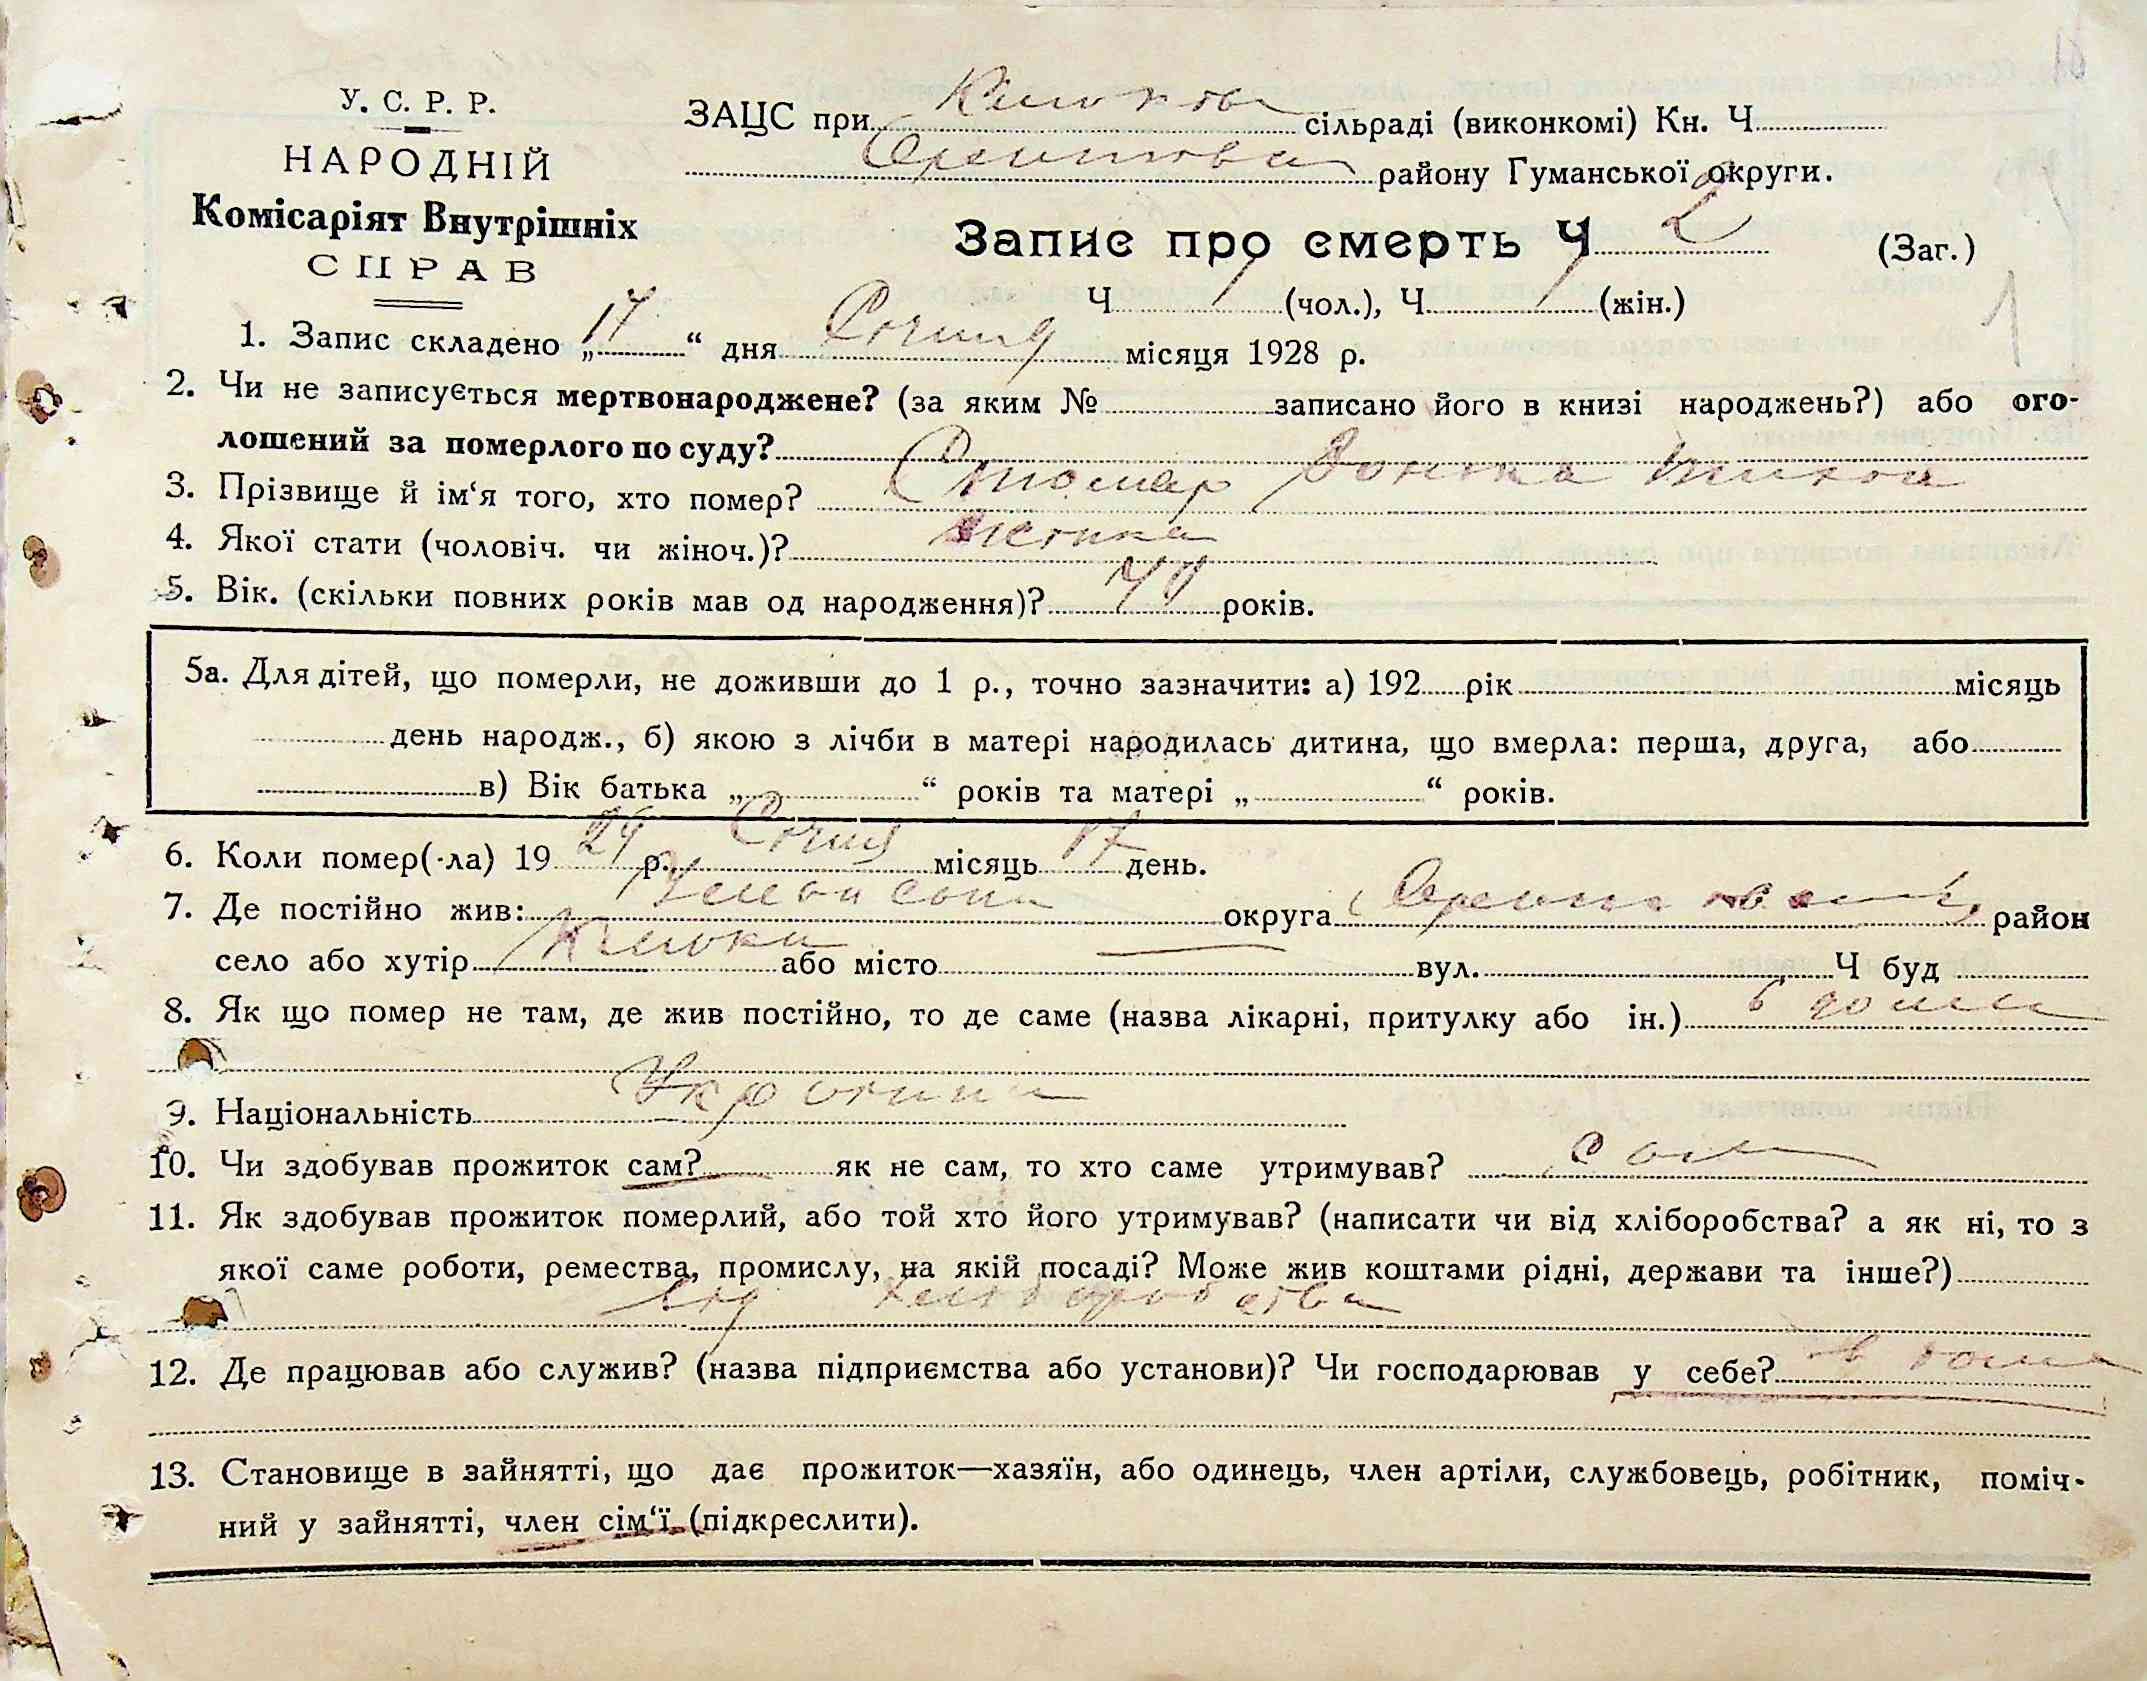 У. С. Р. Р.
НАРОДНІЙ
Комісаріят Внутрішніх
СПРАВ
ЗАЦС при сільраді (виконкомі) Кн. Ч
району Гуманської округи.
Запис про смерть Ч 2 (Заг.)
Ч 1 (чол.), Ч 1 (жін.)
1. Запис складено „17“ дня Січня місяця 1928 р.
2. Чи не записується мертвонароджене? (за яким № записано його в книзі народжень?) або ого-
лошений за померлого по суду?
3. Прізвище й ім‘я того, хто помер? Столяр
4. Якої стати (чоловіч. чи жіноч.)?
5. Вік. (скільки повних років мав од народження)? років.
5а. Для дітей, що померли, не доживши до 1 р., точно зазначити: а) 192 рік місяць
день народж., б) якою з лічби в матері народилась дитина, що вмерла: перша, друга, або
в) Вік батька „ “ років та матері „ “ років.
6. Коли помер(-ла) 19 р. Січня місяць 17 день.
7. Де постійно жив: округа район
село або хутір або місто — вул. Ч буд
8. Як що помер не там, де жив постійно, то де саме (назва лікарні, притулку або ін.) в доми
9. Національність
10. Чи здобував прожиток сам? як не сам, то хто саме утримував? сам
11. Як здобував прожиток померлий, або той хто його утримував? (написати чи від хліборобства? а як ні, то з
якої саме роботи, ремества, промислу, на якій посаді? Може жив коштами рідні, держави та інше?)
від хліборобства
12. Де працював або служив? (назва підприємства або установи)? Чи господарював у себе? в
13. Становище в зайнятті, що дає прожиток—хазяїн, або одинець, член артіли, службовець, робітник, поміч-
ний у зайнятті, член сім‘ї (підкреслити).
1